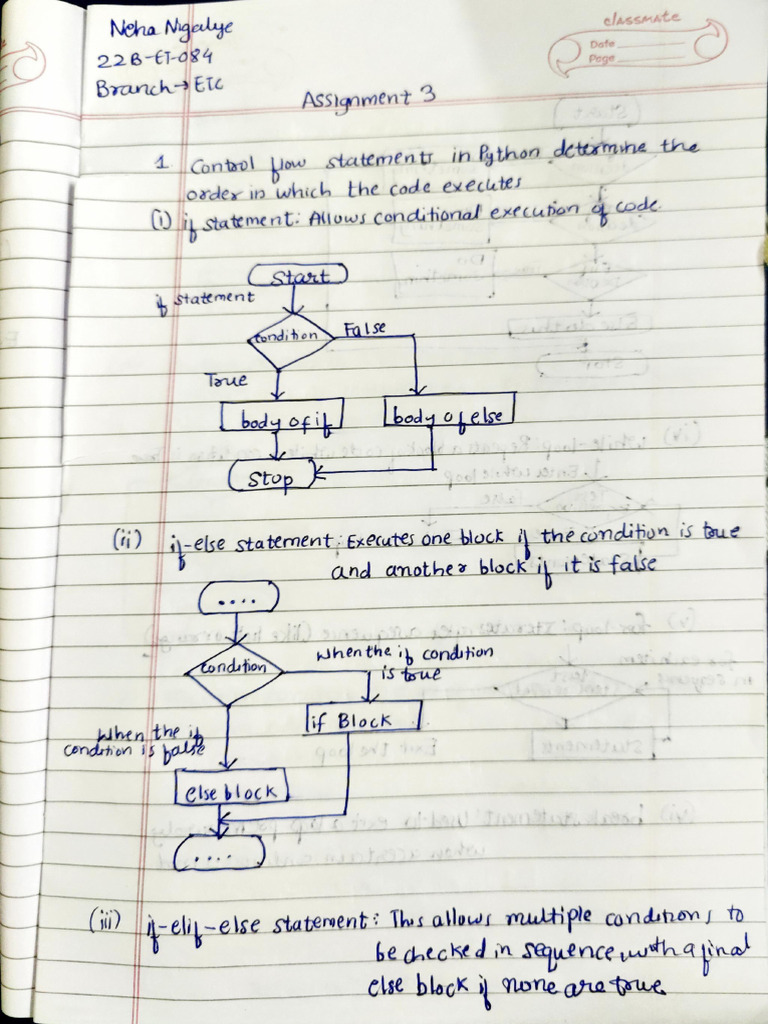 classmate
Date
Page
Neha Nigalye
22B-ET-084
Branch → ETC
Assignment 3
1. Control flow statements in Python determine the
order in which the code executes
(i) if statement: Allows conditional execution of code.
Start
if statement
condition
False
True
body of if
body of else
Stop
(ii) if-else statement: Executes one block if the condition is true
and another block if it is false
....
condition
When the if condition
is true
if Block
When the if
condition is false
else block
....
(iii) if-elif-else statement: This allows multiple conditions to
be checked in sequence, with a final
else block if none are true